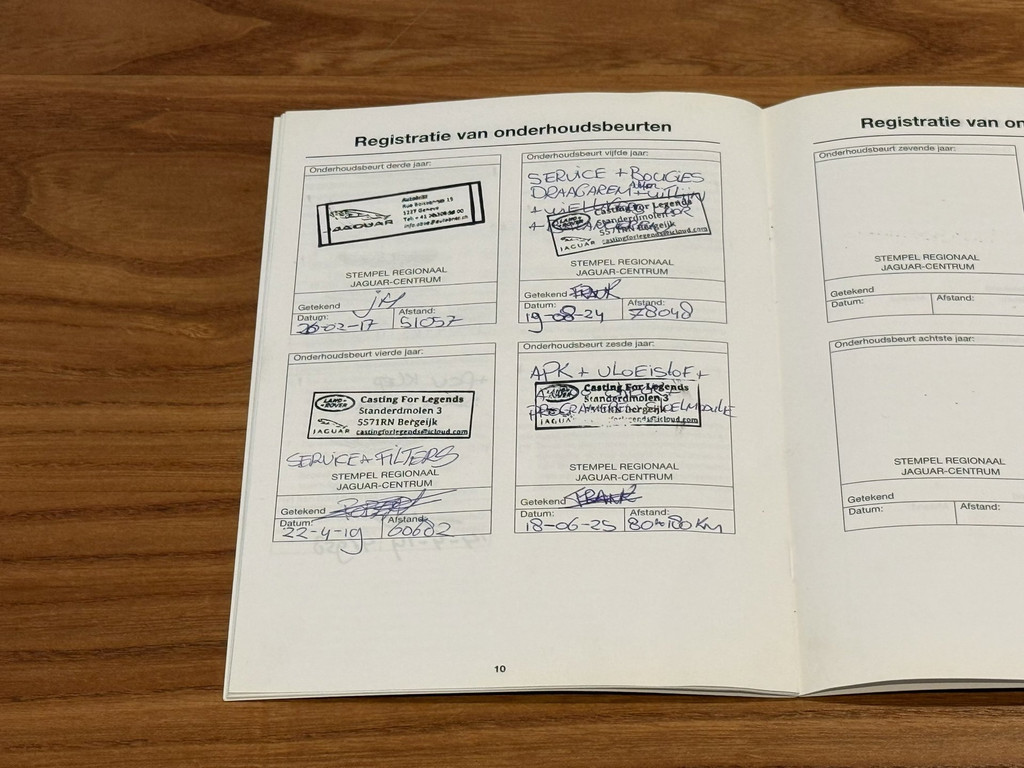 Registratie van onderhoudsbeurten
Onderhoudsbeurt derde jaar:
Rue Boissonnas 15
1227 Geneve
JAGUAR
STEMPEL REGIONAAL
JAGUAR-CENTRUM
Getekend
Datum: Afstand:
26-02-17 51057
Onderhoudsbeurt vierde jaar:
LAND ROVER
JAGUAR
Casting For Legends
Standerdmolen 3
5571RN Bergeijk
castingforlegends@icloud.com
SERVICE + FILTERS
STEMPEL REGIONAAL
JAGUAR-CENTRUM
Getekend
Datum: Afstand:
22-4-19 60602
Onderhoudsbeurt vijfde jaar:
SERVICE + BOUGIES
DRAAGAREM + UITLIJN
Casting For Legends
Standerdmolen 3
5571RN Bergeijk
castingforlegends@icloud.com
STEMPEL REGIONAAL
JAGUAR-CENTRUM
Getekend FRANK
Datum: Afstand:
19-08-24 78048
Onderhoudsbeurt zesde jaar:
APK + VLOEISTOF +
Casting For Legends
Standerdmolen 3
PROGRAMEREN STOELMODULE
5571RN Bergeijk
JAGUAR
STEMPEL REGIONAAL
JAGUAR-CENTRUM
Getekend FRANK
Datum: Afstand:
18-06-25
10
Registratie van on
Onderhoudsbeurt zevende jaar:
STEMPEL REGIONAAL
JAGUAR-CENTRUM
Getekend
Datum: Afstand:
Onderhoudsbeurt achtste jaar:
STEMPEL REGIONAAL
JAGUAR-CENTRUM
Getekend
Datum: Afstand: